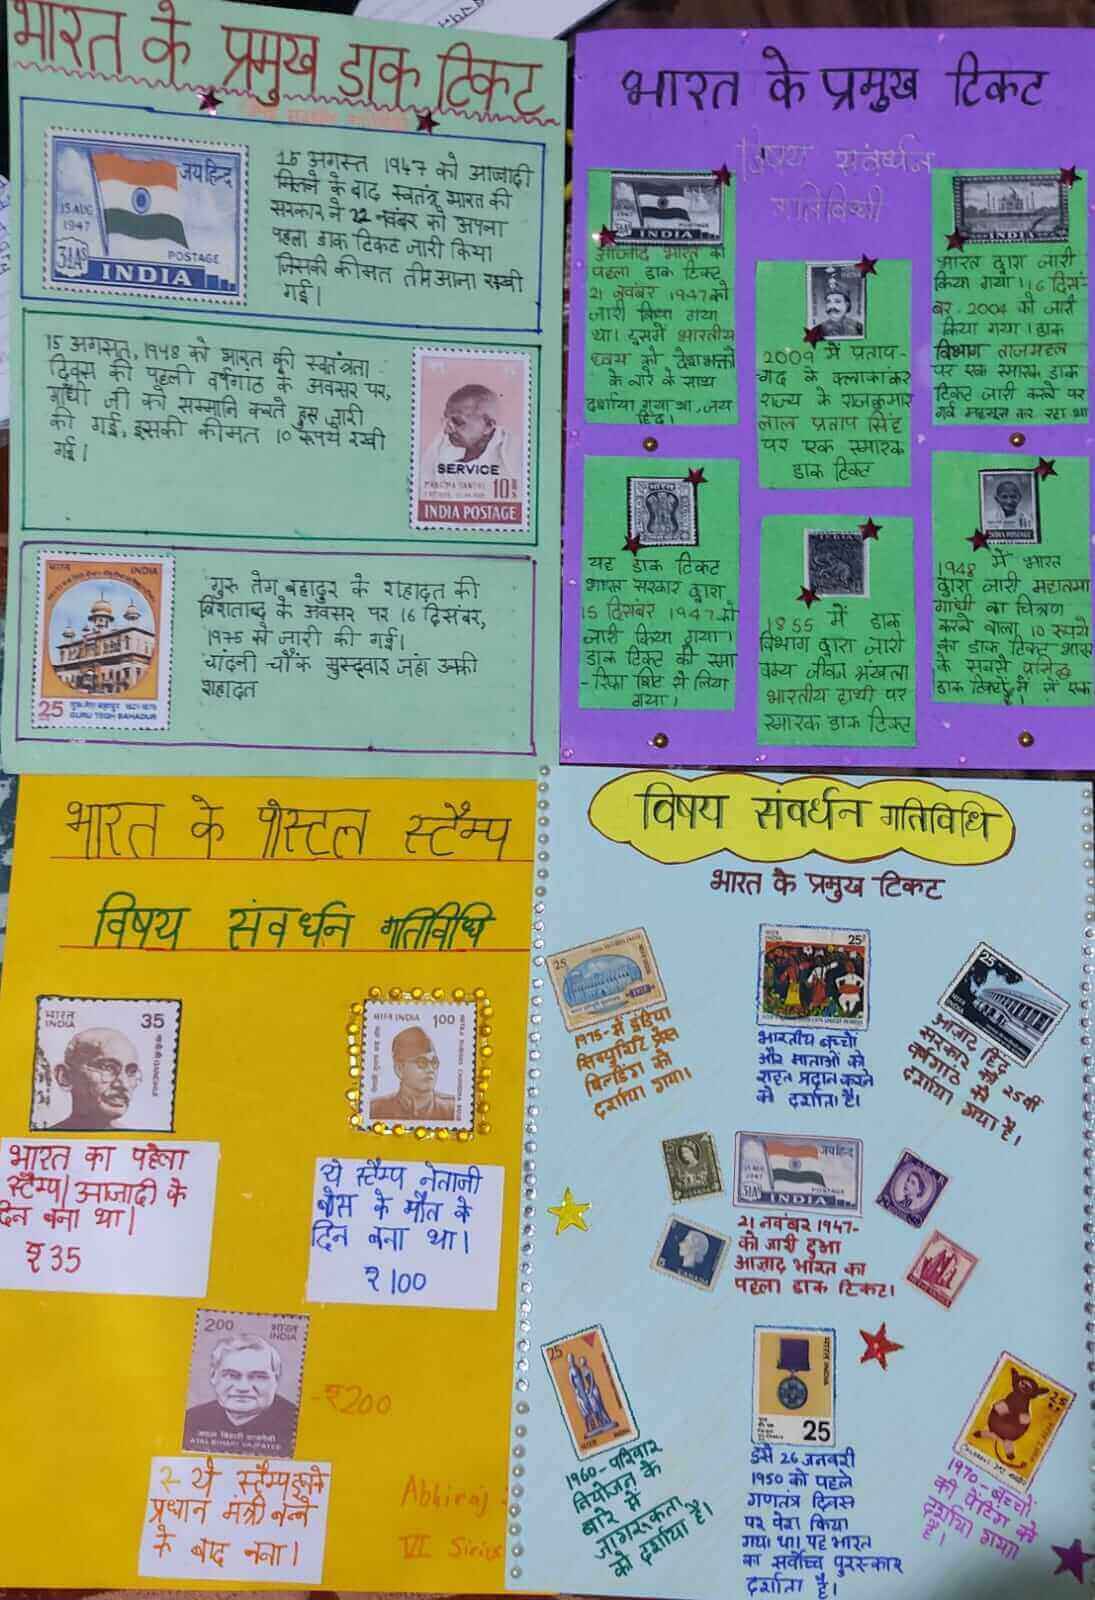 भारत के प्रमुख डाक टिकट
जय हिन्द
15 AUG
1947
3½ AS
POSTAGE
INDIA
15 अगस्त 1947 को आजादी
मिलने के बाद स्वतंत्र भारत की
सरकार ने 22 नवंबर को अपना
पहला डाक टिकट जारी किया
जिसकी कीमत तीन आना रखी
गई।
15 अगस्त, 1948 को भारत की स्वतंत्रता
दिवस की पहली वर्षगांठ के अवसर पर,
गांधी जी को सम्मानि करते हुए जारी
की गई, इसकी कीमत 10 रूपये रखी
गई।
SERVICE
10
INDIA POSTAGE
भारत INDIA
25
GURU TEGH BAHADUR
गुरू तेग बहादुर के शहादत की
के अवसर पर 16 दिसंबर,
1975 को जारी की गई।
चांदनी चौक जहां उनकी
शहादत
भारत के प्रमुख टिकट
विषय संवर्धन
गतिविधी
INDIA
आजाद भारत का
पहला डाक टिकट
21 नवंबर 1947 को
जारी किया गया
था। इसमें भारतीय
ध्वज को देशभक्तों
के नारे के साथ
दर्शाया गया था, जय
हिंद।
2009 में प्रताप-
गढ के कालाकांकर
राज्य के राजकुमार
लाल प्रताप सिंह
पर एक स्मारक
डाक टिकट
भारत द्वारा जारी
किया गया। 16 दिसं-
बर, 2004 को जारी
किया गया। डाक
विभाग ताजमहल
पर एक स्मारक डाक
टिकट जारी करने पर
गर्व महसूस कर रहा था
यह डाक टिकट
भारत सरकार द्वारा
15 दिसंबर 1947 को
जारी किया गया।
डाक टिकट की स्मा
-रिका शिट से लिया
गया।
1855 में डाक
विभाग द्वारा जारी
वन्य जीवन श्रृंखला
भारतीय हाथी पर
स्मारक डाक टिकट
INDIA POSTAGE
1948 में भारत
द्वारा जारी महात्मा
गांधी का चित्रण
करने वाला 10 रूपये
का डाक टिकट भारत
के सबसे प्रसिद्ध
डाक टिकटों में से एक
भारत के पोस्टल स्टैम्प
विषय संवर्धन गतिविधि
भारत
INDIA
35
भारत INDIA
100
भारत का पहेला
स्टैम्प। आजादी के
दिन बना था।
₹ 35
ये स्टैम्प नेताजी
बोस के मौत के
दिन बना था।
₹ 100
200
भारत
INDIA
ATAL BIHARI VAJPAYEE
-₹200
2- ये स्टैम्प इनके
प्रधान मंत्री बनने
के बाद बना।
Abhiraj
VI Sirius
विषय संवर्धन गतिविधि
भारत के प्रमुख टिकट
25
1975- में इंडिया
सिक्युरिटि प्रेस
बिल्डिंग को
दर्शाया गया।
भारत
INDIA
25
भारतीय बच्चों
और माताओं को
राहत प्रदान करने
को दर्शाता है।
25
आज़ाद हिंद
सरकार की 25वीं
वर्षगांठ को
दर्शाया गया है।
जयहिन्द
15 AUG
1947
3½ AS
INDIA
21 नवंबर 1947-
को जारी हुआ
आज़ाद भारत का
पहला डाक टिकट।
25
1960- परिवार
नियोजन के
बारे में
जागरूकता
को दर्शाया है।
भारत INDIA
25
इसे 26 जनवरी
1950 को पहले
गणतंत्र दिवस
पर पेश किया
गया था। यह भारत
का सर्वोच्च पुरस्कार
दर्शाता है।
1970- बच्चों
की पेंटिंग को
दर्शाया गया
है।